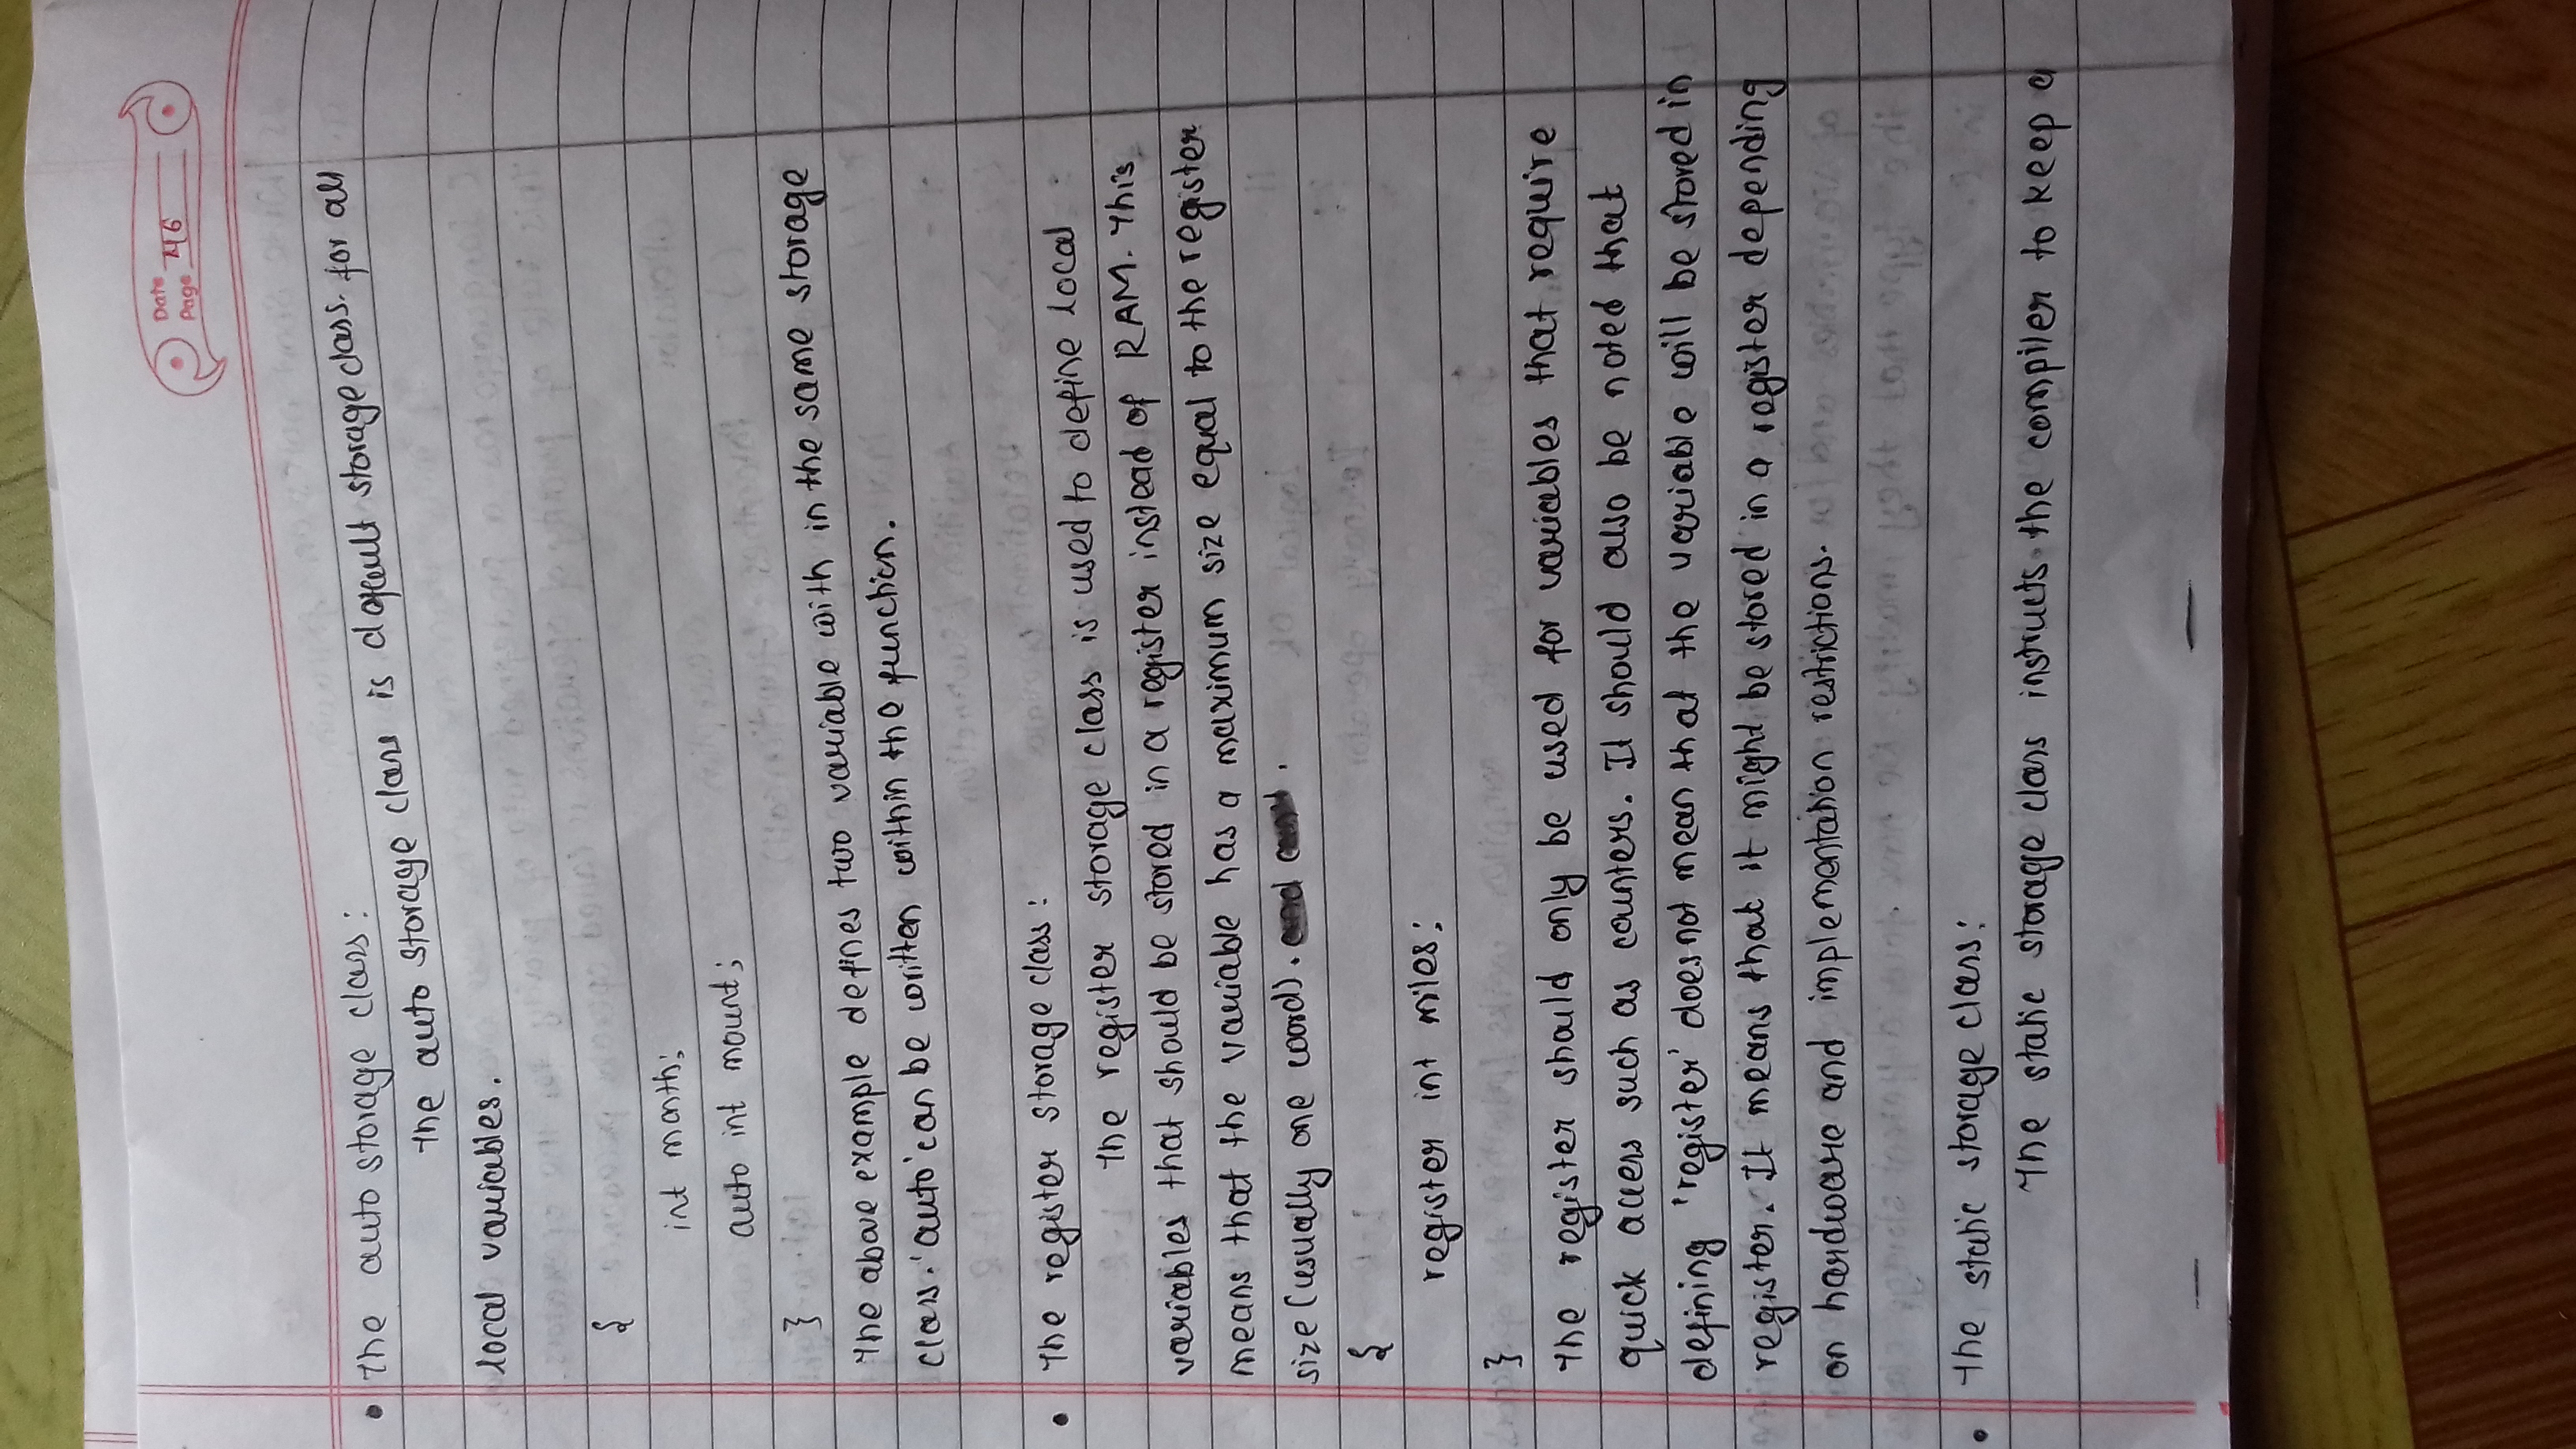 Date
Page 46
• The auto storage class:
The auto storage class is default storage class. for all
local variables.
{
int month;
auto int mount;
}
The above example defines two variable with in the same storage
class. 'auto' can be written within the function.
• The register storage class:
The register storage class is used to define local
variables that should be stored in a register instead of RAM. This
means that the variable has a maximum size equal to the register
size (usually one word). and
{
register int miles;
}
The register should only be used for variables that require
quick access such as counters. It should also be noted that
defining 'register' does not mean that the variable will be stored in
register. It means that it might be stored in a register depending
on hardware and implementation restrictions.
• The static storage class:
The static storage class instructs the compiler to keep a